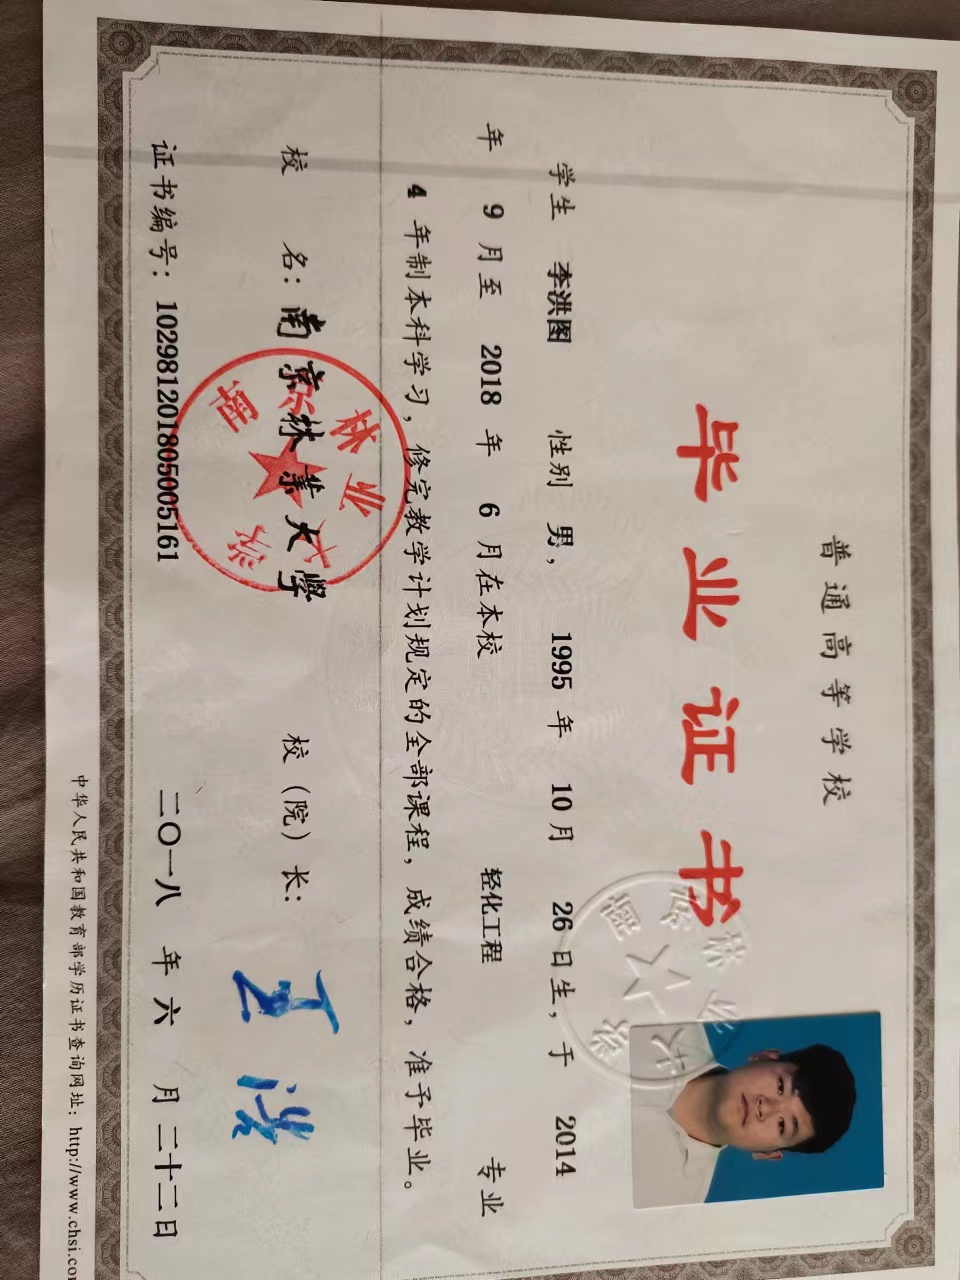 普通高等学校
毕业证书
学生 李洪图 性别 男， 1995 年 10 月 26 日生，于 2014
年 9 月至 2018 年 6 月在本校 轻化工程 专业
4 年制本科学习，修完教学计划规定的全部课程，成绩合格，准予毕业。
校 名：南京林业大学 校（院）长：
南京林业大学
证书编号：102981201805005161 二〇一八 年 六 月 二十二日
中华人民共和国教育部学历证书查询网址：http://www.chsi.com